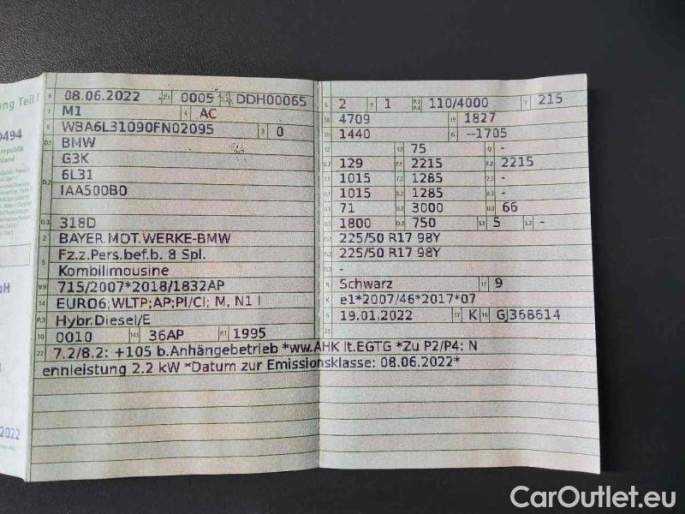 ng Teil I
0494
B 08.06.2022 2.1 0005 2.2 DDH00065
J M1 4 AC
E WBA6L31090FN02095 3 0
D.1 BMW
G3K
6L31
D.2 IAA500B0
D.3 318D
2 BAYER.MOT.WERKE-BMW
5 Fz.z.Pers.bef.b. 8 Spl.
Kombilimousine
V.9 715/2007*2018/1832AP
14 EURO6;WLTP;AP;PI/CI; M, N1 I
P.3 Hybr.Diesel/E
10 0010 14.1 36AP P.1 1995
22 7.2/8.2: +105 b.Anhängebetrieb *ww.AHK lt.EGTG *Zu P2/P4: N
ennleistung 2.2 kW *Datum zur Emissionsklasse: 08.06.2022*
L 2 9 1 P.2 P.4 110/4000 T 215
18 4709 19 1827
20 1440 G --1705
12 - 13 75 Q -
V.7 129 F.1 2215 F.2 2215
7.1 1015 7.2 1285 7.3 -
8.1 1015 8.2 1285 8.3 -
U.1 71 U.2 3000 U.3 66
O.1 1800 O.2 750 S.1 5 S.2 -
15.1 225/50 R17 98Y
15.2 225/50 R17 98Y
15.3 -
R Schwarz 11 9
K e1*2007/46*2017*07
6 19.01.2022 17 K 16 GJ368614
21
2022
CarOutlet.eu